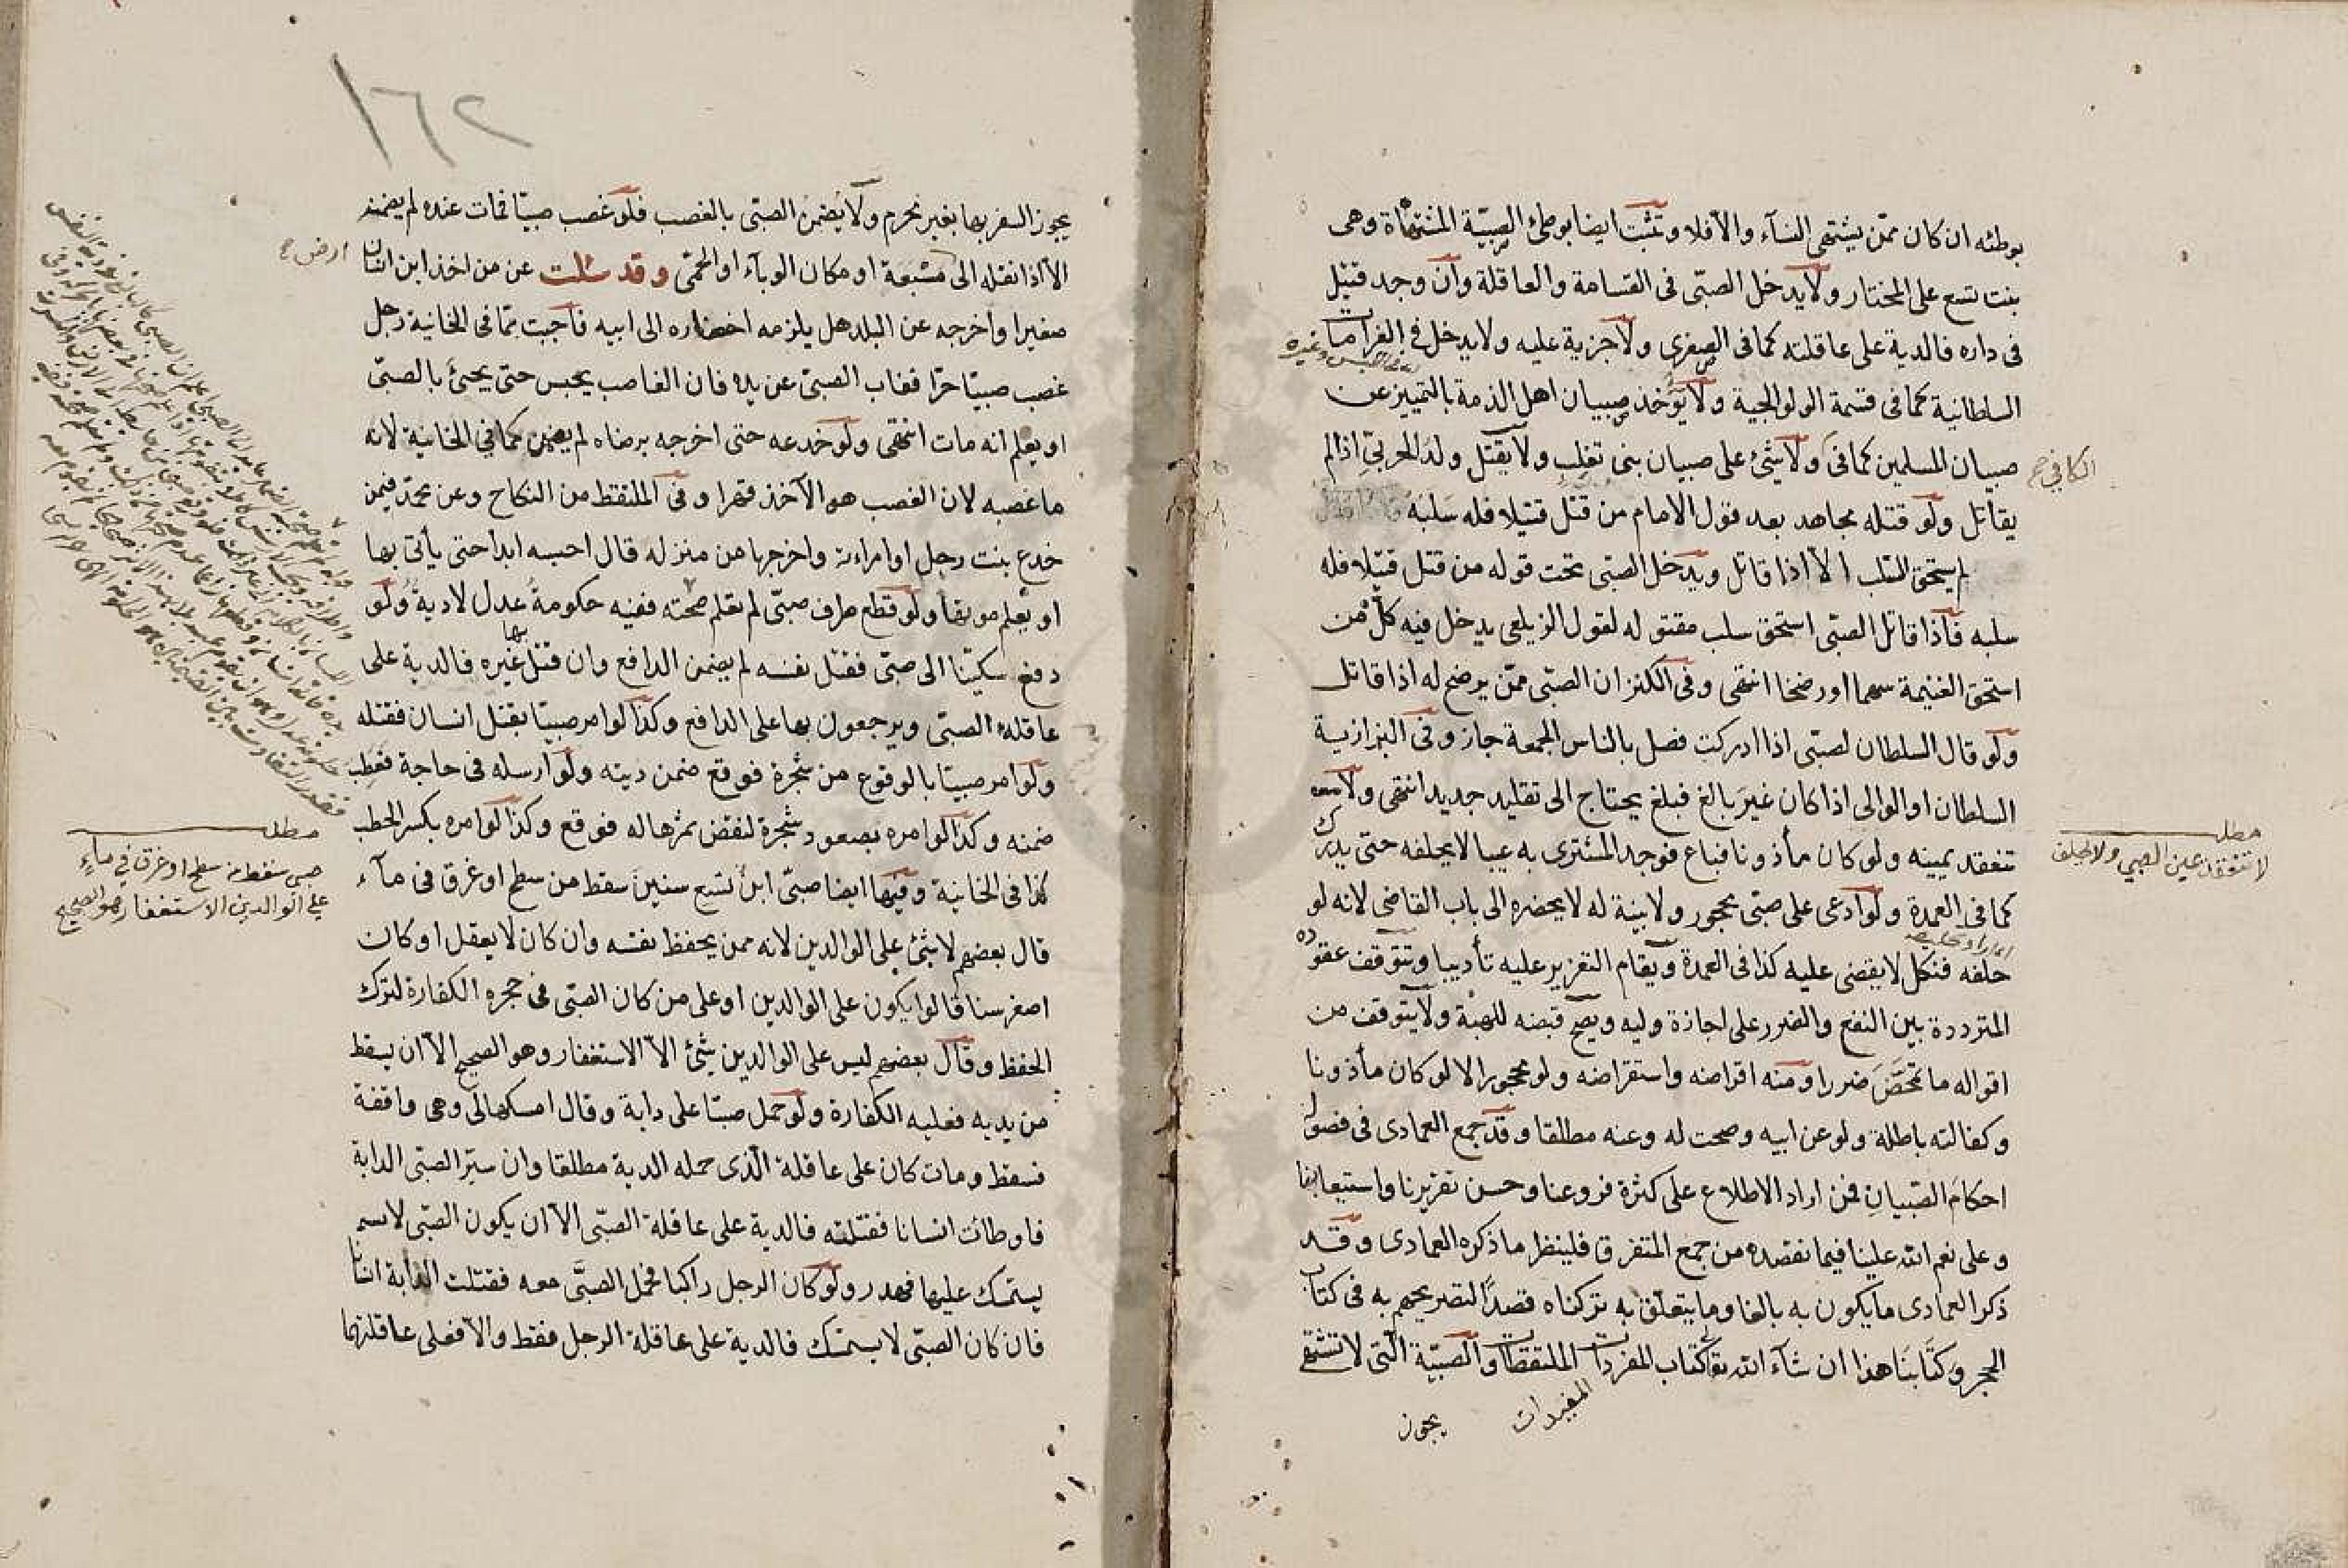 بوطئه ان كان ممن يشتهى النسآء والا فلا وتثبت ايضا بوطئ الصبيّة المشتهاة وهى
بنت تسع على المختار ولا يدخل الصبّى فى القسامة والعاقلة وان وجد قتيل
فى داره فالدية على عاقلته كما فى الصغرى ولا جزية عليه ولا يدخل فى الغرامات
السلطانية كما فى قسمة الولوالجية ولا يؤخذ صبيان اهل الذمة بالتمييز عن
صبيان المسلمين كما فى ولا شئ على صبيان بنى تغلب ولا يقتل ولد الحربىّ اذا لم
الكافى صح
يقاتل ولو قتله مجاهد بعد قول الامام من قتل قتيلا فله سلبه
لم يستحق السّلب الا اذا قاتل ويدخل الصبى تحت قوله من قتل قتيلا فله
سلبه فاذا قاتل الصبّى استحق سلب مقتوله لقول الزيلعى يدخل فيه كلّ من
استحق الغنيمة سهما او رضخا انتهى وفى الكنز ان الصبّى ممّن يرضخ له اذا قاتل
ولو قال السلطان لصبّى اذا ادركت فصل بالناس الجمعة جاز وفى البزازية
السلطان او الوالى اذا كان غير بالغ فبلغ يحتاج الى تقليد جديد انتهى ولا
تنعقد يمينه ولو كان مأذونا فباع فوجد المشترى به عيبا لا يحلفه حتى يدرك
مطلـ
لا تنعقد يمين الصبي ولا يحلف
كما فى العمدة ولو ادعى على صبّى محجور ولا بينة له لا يحضره الى باب القاضى لانه لو
حلفه فنكل لا يقضى عليه كذا فى العمدة ويقام التعزير عليه تأديبا وتتوقف عقوده
المترددة بين النفع والضرر على اجازة وليه ويصح قبضه للهبة ولا يتوقف من
اقواله ما تمحّض ضررا ومنه اقراضه واستقراضه ولو محجورا الا لو كان مأذونا
وكفالته باطلة ولو عن ابيه وصحت له وعنه مطلقا وقد جمع العمادى فى فصوله
احكام الصبيان فمن اراد الاطلاع على كثرة فروعنا وحسن تقريرنا واستيعابنا
وعلى نعم الله علينا فيما نقصده من جمع المتفرق فلينظر ما ذكره العمادى وقد
ذكر العمادى ما يكون به بالغا وما يتعلق به تركناه قصدا لتصريحهم به فى كتاب
الحجر وكتابنا هذا ان شآء الله تعا كتاب المفردات الملتقطات والصبيّة الّتى لا تشتهى
المفيدات
يجوز
١٦٢
يجوز السفر بها بغير محرم ولا يضمن الصبّى بالغصب فلو غصب صبيّا فمات عنده لم يضمنه
الا اذا نقله الى مسبعة او مكان الوبآء او الحمّى وقد سئلت عن من اخذ ابن انسان
ارض صح
صغيرا واخرجه عن البلد هل يلزمه احضاره الى ابيه فاجبت بما فى الخانية رجل
غصب صبيّا حرّا فغاب الصبىّ عن يده فان الغاصب يحبس حتى يجئ بالصبىّ
او يعلم انه مات انتهى ولو خدعه حتى اخرجه برضاه لم يضمن كما فى الخانية لانه
ما غصبه لان الغصب هو الآخذ قهرا وفى الملتقط من النكاح وعن محمّد فيمن
خدع بنت رجل او امراءته واخرجها من منزله قال احبسه ابدا حتى يأتى بها
او يعلم موتها ولو قطع طرف صبىّ لم تعلم صحته ففيه حكومة عدل لا دية ولو
دفع سكّينا الى صبّى فقتل نفسه لم يضمن الدافع وان قتل بها غيره فالدية على
عاقلة الصبّى ويرجعون بها على الدافع وكذا لو امر صبيّا بقتل انسان فقتله
ولو امر صبيّا بالوقوع من شجرة فوقع ضمن ديته ولو ارسله فى حاجة فعطب
ضمنه وكذا لو امره بصعود شجرة لنفض ثمرها له فوقع وكذا لو امره بكسر الحطب
كذا فى الخانية وفيها ايضا صبىّ ابن تسع سنين سقط من سطح او غرق فى مآء
مطلـ
صبي سقط من سطح او غرق في ماء
على الوالدين الاستغفار هو الصحيح
قال بعضهم لا شئ على الوالدين لانه ممن يحفظ نفسه وان كان لا يعقل او كان
اصغر سنا قالوا يكون على الوالدين او على من كان الصبّى فى حجره الكفارة لترك
الحفظ وقال بعضهم ليس على الوالدين شئ الا الاستغفار وهو الصحيح الا ان يسقط
من يديه فعليه الكفارة ولو حمل صبيّا على دابة وقال امسكها لى وهى واقفة
فسقط ومات كان على عاقلة الّذى حمله الدية مطلقا وان سيّر الصبّى الدابة
فاوطأت انسانا فقتلته فالدية على عاقلة الصبّى الا ان يكون الصبّى لا
يستمسك عليها فهدر ولو كان الرجل راكبا فحمل الصبّى معه فقتلت الدابة انسانا
فان كان الصبّى لا يستمسك فالدية على عاقلة الرجل فقط والا فعلى عاقلتهما